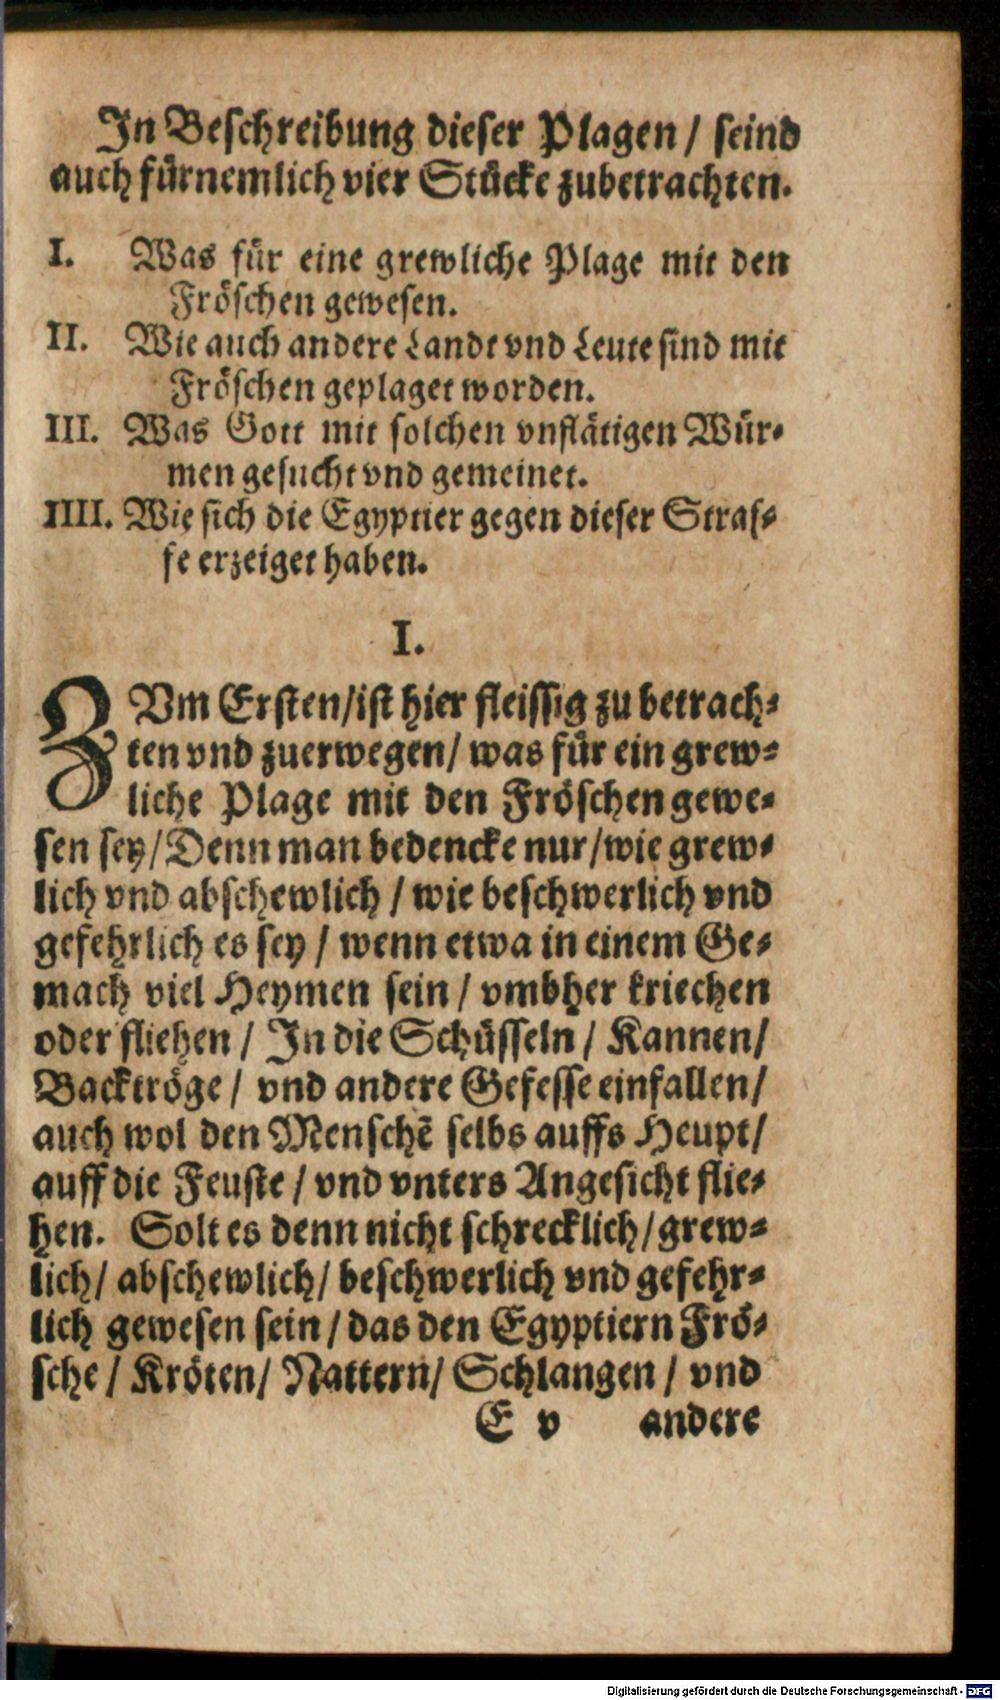 In Beschreibung dieser Plagen / seind
auch fürnemlich vier Stücke zubetrachten.
I. Was für eine grewliche Plage mit den
Fröschen gewesen.
II. Wie auch andere Landt vnd Leute sind mit
Fröschen geplaget worden.
III. Was Gott mit solchen vnflätigen Wür-
men gesucht vnd gemeinet.
IIII. Wie sich die Egyptier gegen dieser Straf-
fe erzeiget haben.
I.
ZVm Ersten/ist hier fleissig zu betrach-
ten vnd zuerwegen/ was für ein grew-
liche Plage mit den Fröschen gewe-
sen sey/Denn man bedencke nur/wie grew-
lich vnd abschewlich / wie beschwerlich vnd
gefehrlich es sey / wenn etwa in einem Ge-
mach viel Heymen sein / vmbher kriechen
oder fliehen / In die Schüsseln / Kannen/
Backtröge / vnd andere Gefesse einfallen/
auch wol den Menschē selbs auffs Heupt/
auff die Feuste / vnd vnters Angesicht flie-
hen. Solt es denn nicht schrecklich/grew-
lich/ abschewlich/ beschwerlich vnd gefehr-
lich gewesen sein / das den Egyptiern Frö-
sche / Kröten/ Nattern/ Schlangen / vnd
E v andere
Digitalisierung gefördert durch die Deutsche Forschungsgemeinschaft - DFG